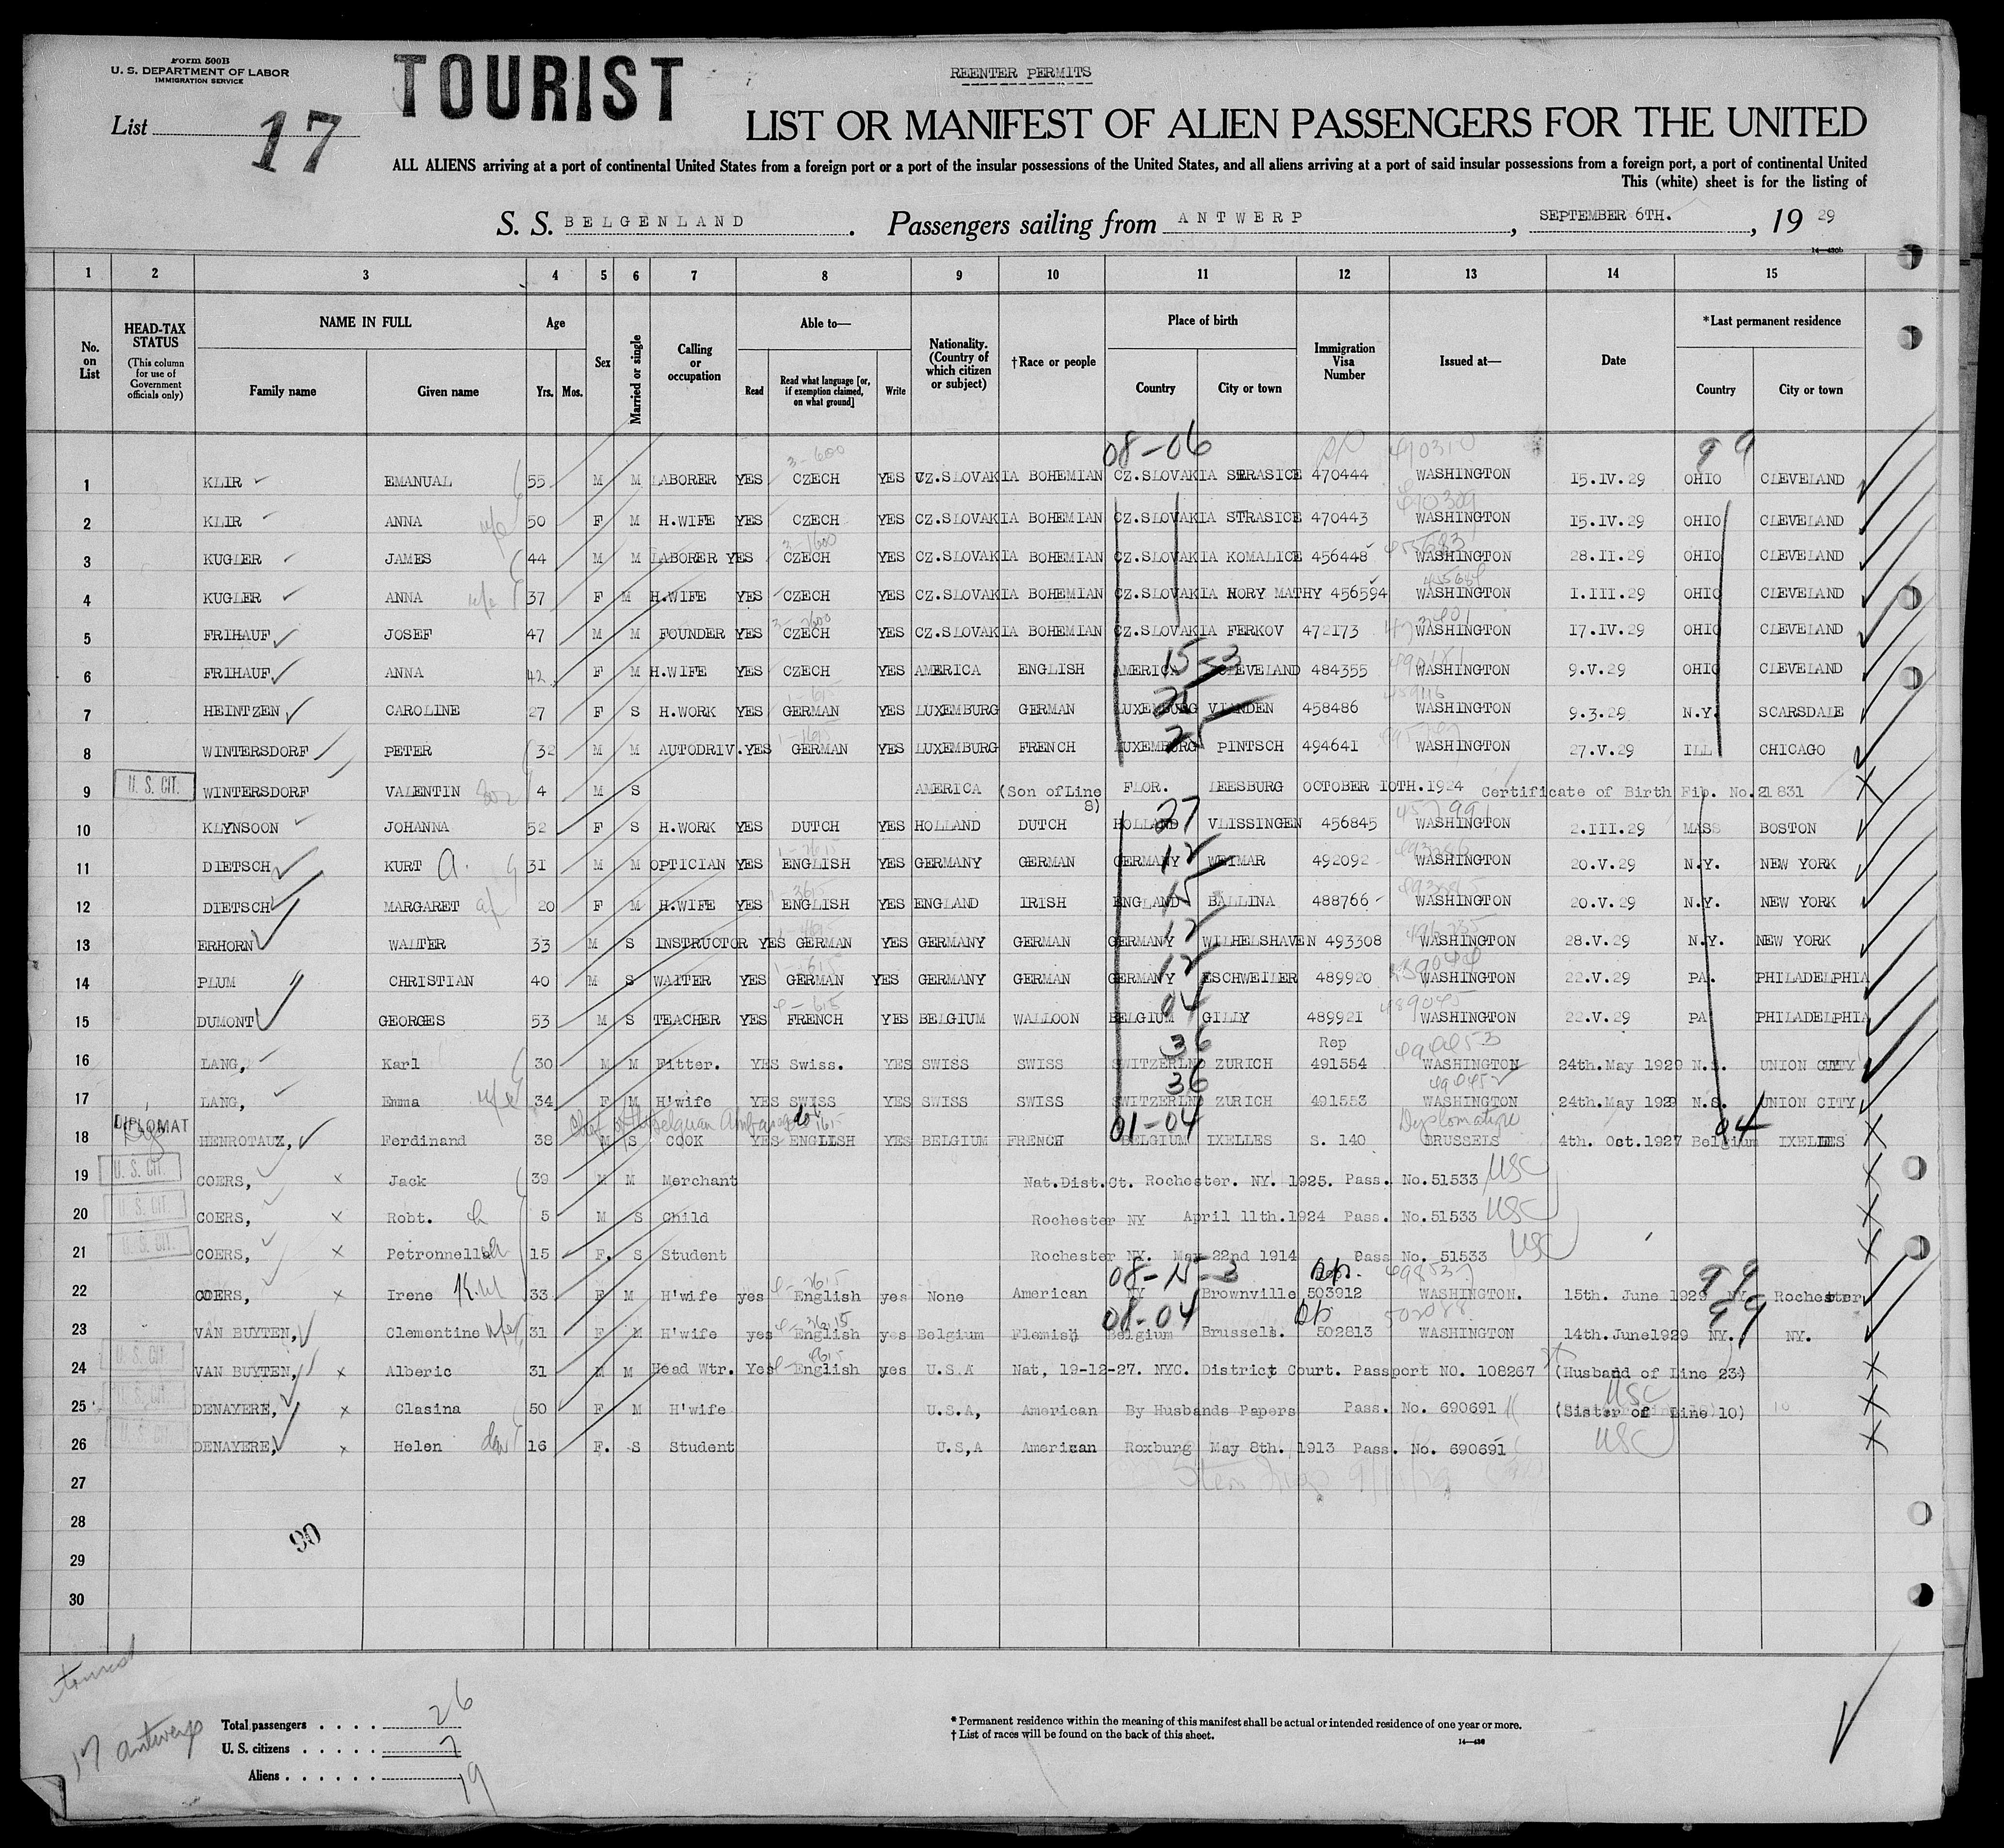 Form 500B
U. S. DEPARTMENT OF LABOR
IMMIGRATION SERVICE
TOURIST
REENTER PERMITS
List 17
LIST OR MANIFEST OF ALIEN PASSENGERS FOR THE UNITED
ALL ALIENS arriving at a port of continental United States from a foreign port or a port of the insular possessions of the United States, and all aliens arriving at a port of said insular possessions from a foreign port, a port of continental United
This (white) sheet is for the listing of
S. S. BELGENLAND. Passengers sailing from ANTWERP, SEPTEMBER 6TH., 19 29
14—430b
1 2 3 4 5 6 7 8 9 10 11 12 13 14 15
No. on List
HEAD-TAX STATUS (This column for use of Government officials only)
NAME IN FULL Family name Given name
Age Yrs. Mos.
Sex
Married or single
Calling or occupation
Able to— Read Read what language [or, if exemption claimed, on what ground] Write
Nationality. (Country of which citizen or subject)
†Race or people
Place of birth Country City or town
Immigration Visa Number
Issued at—
Date
*Last permanent residence Country City or town
08-06 99
3-600 490310
1 KLIR EMANUAL 55 M M LABORER YES CZECH YES CZ.SLOVAKIA BOHEMIAN CZ.SLOVAKIA STRASICE 470444 WASHINGTON 15.IV.29 OHIO CLEVELAND
490309
2 KLIR ANNA wife 50 F M H.WIFE YES CZECH YES CZ.SLOVAKIA BOHEMIAN CZ.SLOVAKIA STRASICE 470443 WASHINGTON 15.IV.29 OHIO CLEVELAND
3 KUGLER JAMES 44 M M LABORER YES CZECH YES CZ.SLOVAKIA BOHEMIAN CZ.SLOVAKIA KOMALICE 456448 WASHINGTON 28.II.29 OHIO CLEVELAND
4 KUGLER ANNA wife 37 F M H.WIFE YES CZECH YES CZ.SLOVAKIA BOHEMIAN CZ.SLOVAKIA HORY MATHY 456594 WASHINGTON I.III.29 OHIO CLEVELAND
5 FRIHAUF JOSEF 47 M M FOUNDER YES CZECH YES CZ.SLOVAKIA BOHEMIAN CZ.SLOVAKIA FERKOV 472173 WASHINGTON 17.IV.29 OHIO CLEVELAND
15-3
6 FRIHAUF ANNA 42 F M H.WIFE YES CZECH YES AMERICA ENGLISH AMERICA CLEVELAND 484355 WASHINGTON 9.V.29 OHIO CLEVELAND
21
7 HEINTZEN CAROLINE 27 F S H.WORK YES GERMAN YES LUXEMBURG GERMAN LUXEMBURG VIANDEN 458486 WASHINGTON 9.3.29 N.Y. SCARSDALE
8 WINTERSDORF PETER 32 M M AUTODRIV. YES GERMAN YES LUXEMBURG FRENCH LUXEMBURG PINTSCH 494641 WASHINGTON 27.V.29 ILL CHICAGO
U. S. CIT.
9 WINTERSDORF VALENTIN son 4 M S AMERICA (Son of Line 8) FLOR. LEESBURG OCTOBER 10TH.1924 Certificate of Birth Fip. No.21831
27
10 KLYNSOON JOHANNA 52 F S H.WORK YES DUTCH YES HOLLAND DUTCH HOLLAND VLISSINGEN 456845 WASHINGTON 2.III.29 MASS BOSTON
12
11 DIETSCH KURT A. 31 M M OPTICIAN YES ENGLISH YES GERMANY GERMAN GERMANY WEIMAR 492092 WASHINGTON 20.V.29 N.Y. NEW YORK
15
12 DIETSCH MARGARET 20 F M H.WIFE YES ENGLISH YES ENGLAND IRISH ENGLAND BALLINA 488766 WASHINGTON 20.V.29 N.Y. NEW YORK
12
13 ERHORN WALTER 33 M S INSTRUCTOR YES GERMAN YES GERMANY GERMAN GERMANY WILHELSHAVEN 493308 WASHINGTON 28.V.29 N.Y. NEW YORK
12
14 PLUM CHRISTIAN 40 M S WAITER YES GERMAN YES GERMANY GERMAN GERMANY ESCHWEILER 489920 WASHINGTON 22.V.29 PA. PHILADELPHIA
04 489045
15 DUMONT GEORGES 53 M S TEACHER YES FRENCH YES BELGIUM WALLOON BELGIUM GILLY 489921 WASHINGTON 22.V.29 PA PHILADELPHIA
36 Rep
16 LANG, Karl 30 M M Fitter. YES Swiss. YES SWISS SWISS SWITZERLND ZURICH 491554 WASHINGTON 24th.May 1929 N.S. UNION CITY
36
17 LANG, Emma wife 34 F M H'wife YES SWISS YES SWISS SWISS SWITZERLND ZURICH 491553 WASHINGTON 24th.May 1929 N.S. UNION CITY
DIPLOMAT 01-04 Diplomatique 04
18 HENROTAUX, Ferdinand 38 M S COOK YES ENGLISH YES BELGIUM FRENCH BELGIUM IXELLES S. 140 BRUSSELS 4th. Oct.1927 Belgium IXELLES
U. S. CIT.
19 COERS, x Jack 39 M M Merchant Nat.Dist.Ct. Rochester. NY. 1925. Pass. No.51533 USC
U. S. CIT.
20 COERS, x Robt. 5 M S Child Rochester NY April 11th.1924 Pass. No.51533 USC
U. S. CIT.
21 COERS, x Petronnella 15 F. S Student Rochester NY. May 22nd 1914 Pass No. 51533 USC
08-15-3 99
22 COERS, x Irene 33 F M H'wife yes English yes None American NY Brownville 503912 WASHINGTON. 15th. June 1929 NY Rochester
08-04 99
23 VAN BUYTEN, Clementine wife 31 F M H'wife yes English yes Belgium Flemish Belgium Brussels. 502813 WASHINGTON 14th.June1929 NY. NY.
U. S. CIT.
24 VAN BUYTEN, x Alberic 31 M M Head Wtr. Yes English yes U.S.A Nat, 19-12-27. NYC. District Court. Passport NO. 108267 (Husband of Line 23)
U. S. CIT. USC
25 DENAYERE, x Clasina 50 F M H'wife U.S.A, American By Husbands Papers Pass. No. 690691 (Sister of Line 10)
U. S. CIT.
26 DENAYERE, x Helen dau 16 F. S Student U.S,A American Roxburg May 8th. 1913 Pass. No. 690691 USC
27
28
29
30
90
tourist
17 Antwerp
Total passengers . . . . 26
U. S. citizens . . . . . 7
Aliens . . . . . . 19
* Permanent residence within the meaning of this manifest shall be actual or intended residence of one year or more.
† List of races will be found on the back of this sheet.
14—430